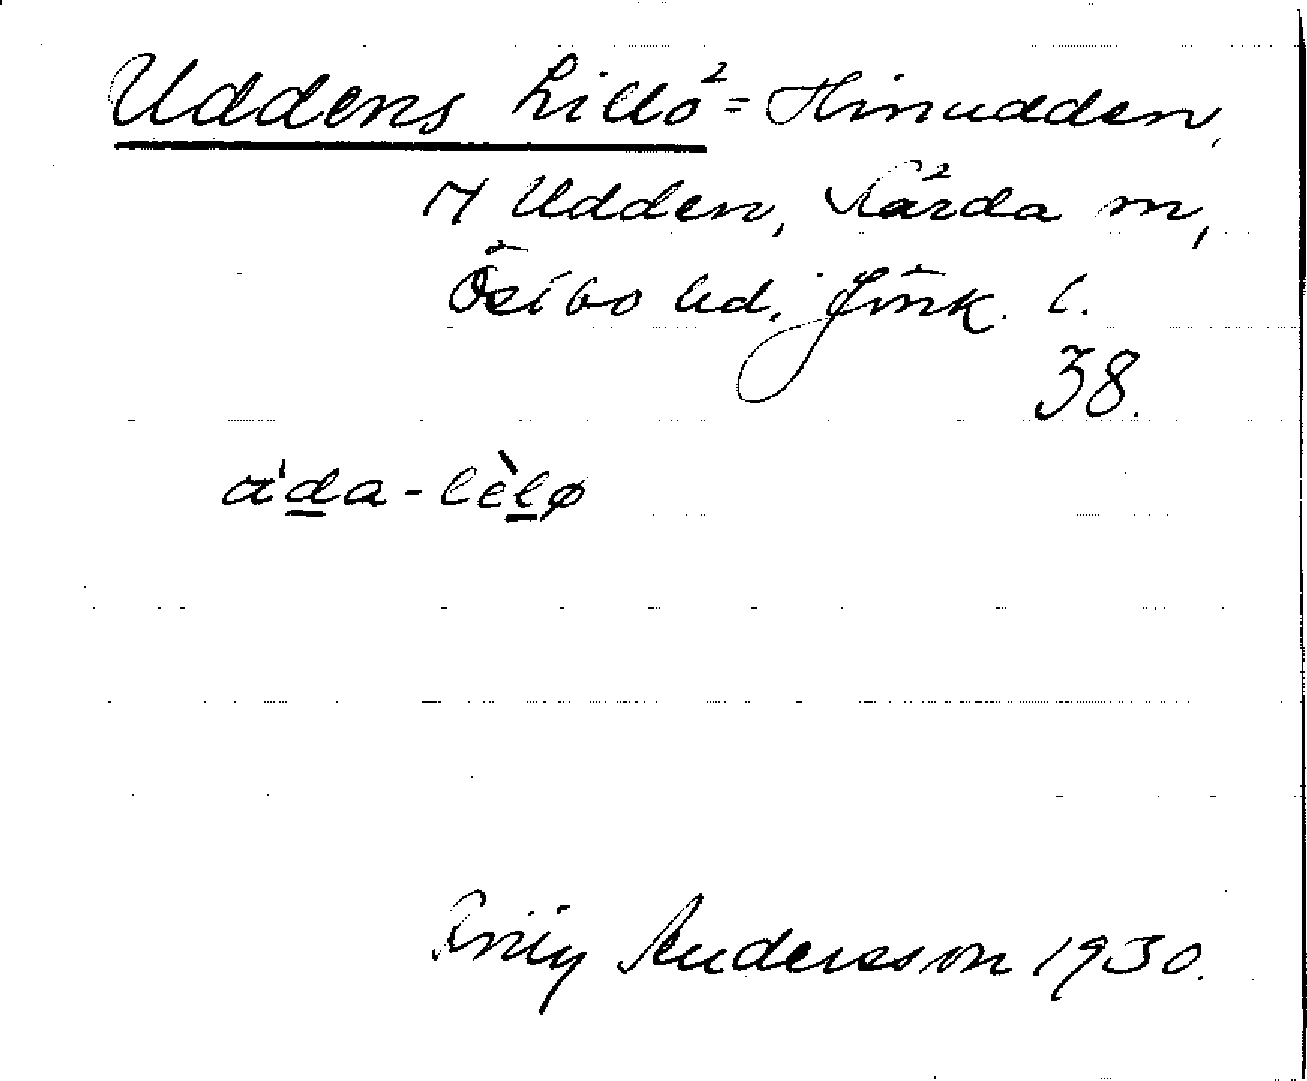 Uddens Lillö = Hinudden,
H Udden, Kärda sn,
Östbo hd, Jönk. l.
38.
a'da-lèlø
Emily Andersson 1930.